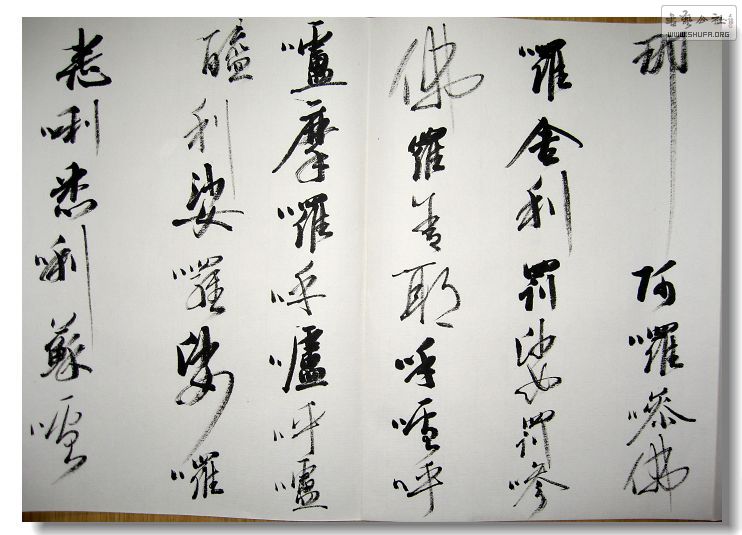 那阿囉嘇佛
囉舍利罰娑罰嘇
佛囉舍耶呼嚧呼
嚧摩囉呼嚧呼嚧
醯利娑囉娑囉
悉唎悉唎蘇嚧
WWW.SHUFA.ORG